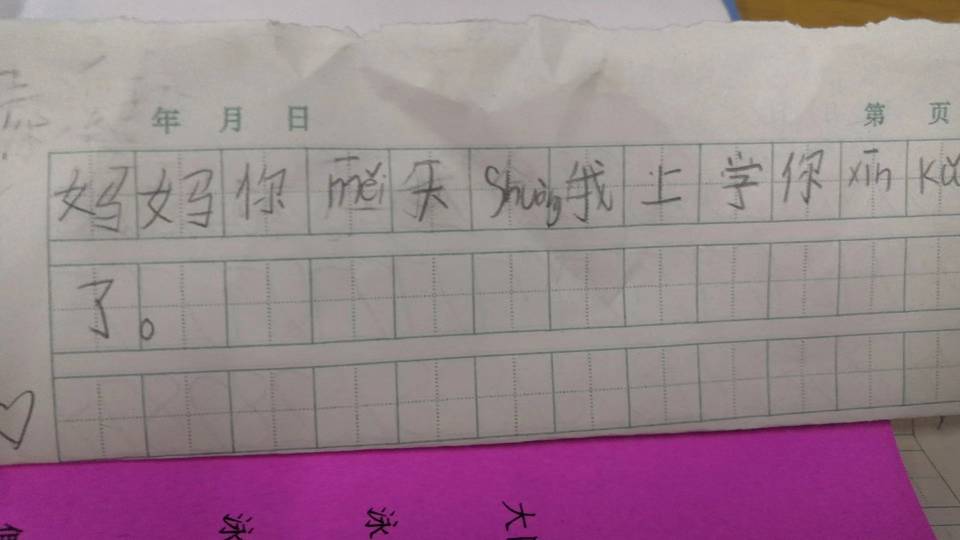 年 月 日
第 页
妈妈你měi天Shuòng我上学你xīn kǔ
了。
泳 泳 大